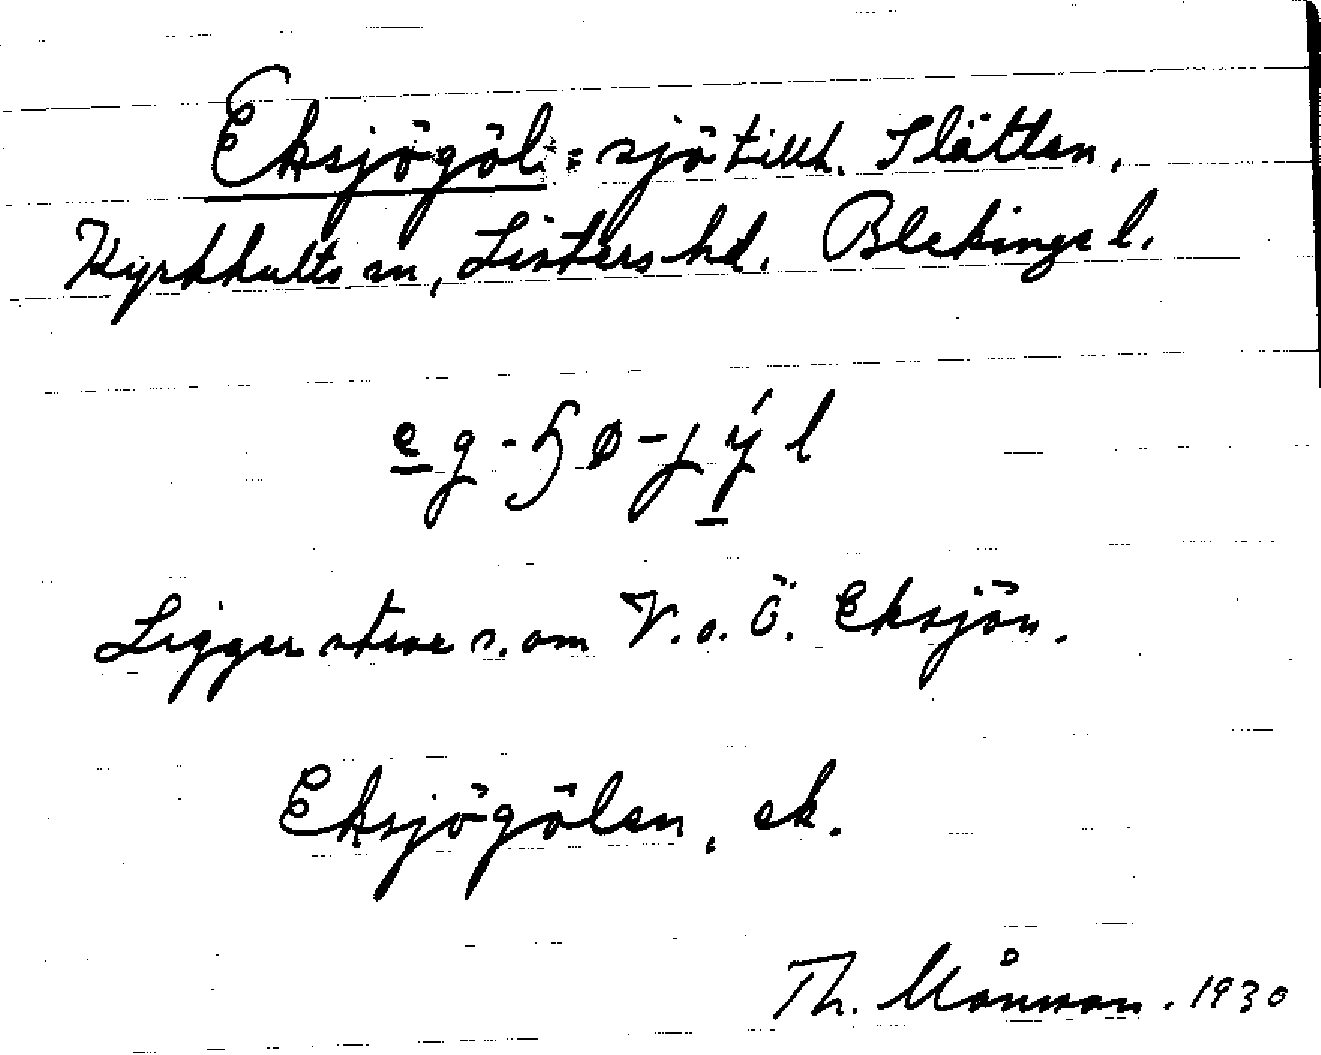 Eksjögöl = sjö tillh. Slätten,
Kyrkhults sn, Listers hd. Blekinge l.
eg-ɧø-jýl
Ligger strax s. om V. o. Ö. Eksjön.
Eksjögölen, ek.
Th. Månsson. 1930